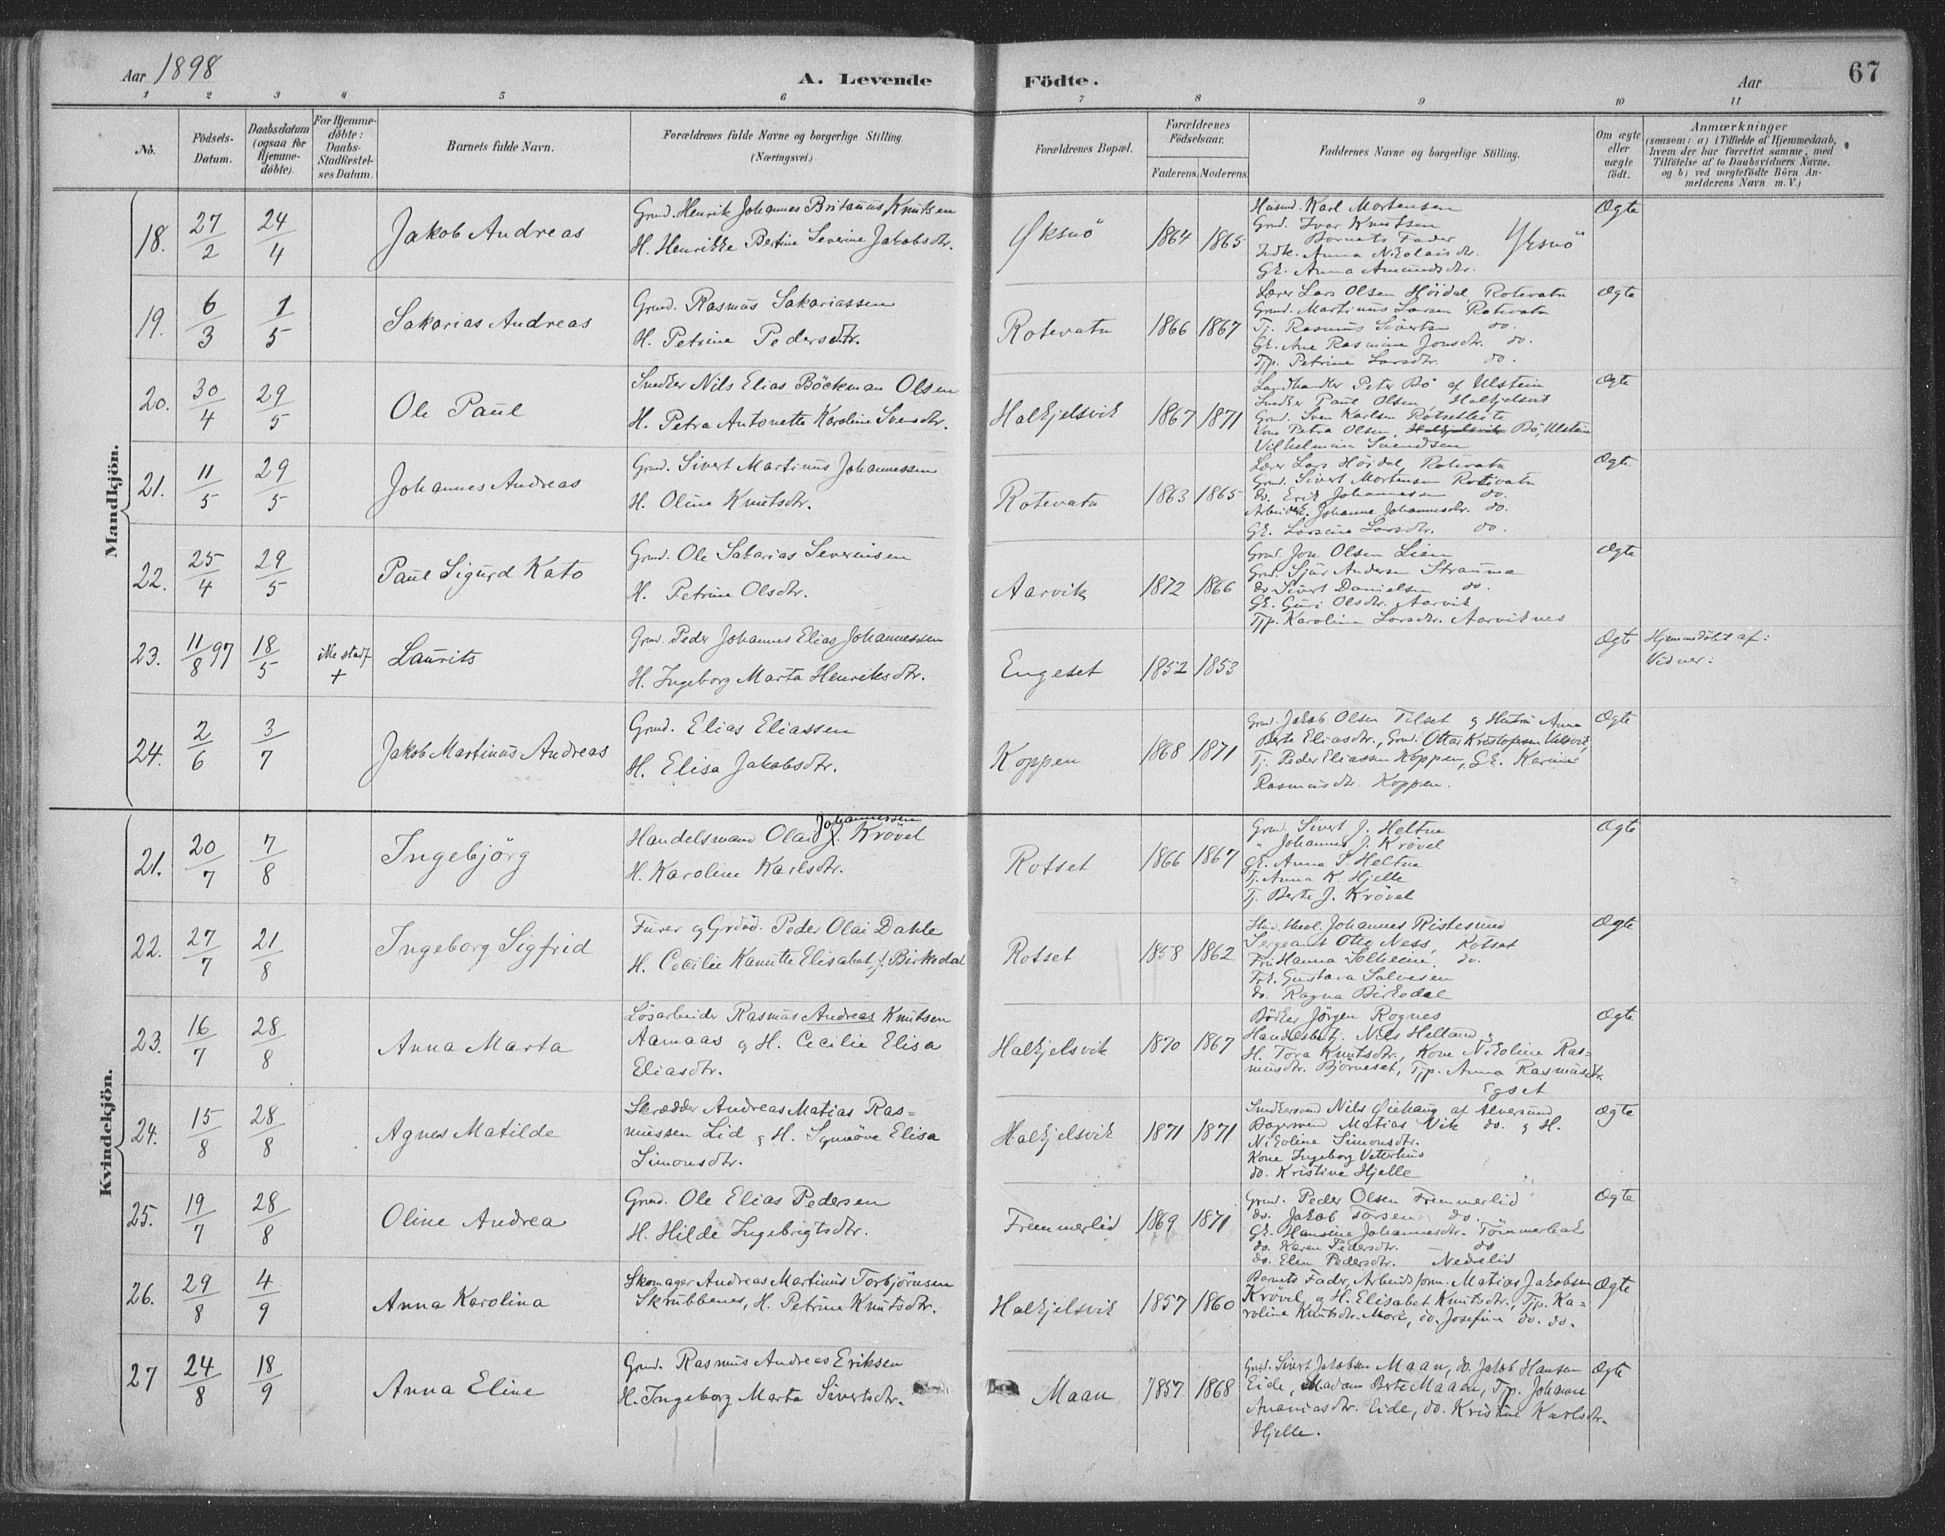 Aar 1898
A. Levende
Födte.
Aar
67
1 2 3 4 5 6 7 8 9 10 11
No.
Födsels-
Datum.
Daabsdatum
(ogsaa for
Hjemme-
döbte).
For Hjemme-
döbte:
Daabs-
Stadfestel-
ses Datum.
Barnets fulde Navn.
Forældrenes fulde Navne og borgerlige Stilling.
(Næringsvei).
Forældrenes Bopæl.
Forældrenes
Födselsaar.
Faderens. Moderens.
Faddernes Navne og borgerlige Stilling.
Om ægte
eller
uægte
födt.
Anmærkninger
(saasom: a) i Tilfælde af Hjemmedaab,
hvem der har forrettet samme, med
Tilföielse af to Daabsvidners Navne,
og b) ved uægtefödte Börn An-
melderens Navn m. V.)
Mandkjön.
18. 27/2 24/4 Jakob Andreas
Grmd. Henrik Johannes Britanus Knutsen
H. Henrikke Bertine Severine Jakobsdtr.
Yksnö 1864 1865
Husmd. Karl Mortensen
Grmd. Ivar Knutsen
Barnets Fader
Indk. Anna Nikolaisdtr.
GK. Anna Amundsdtr.
Yksnö
Ægte
19. 6/3 1/5 Sakarias Andreas
Grmd. Rasmus Sakariassen
H. Petrine Pedersdtr.
Rotevatn 1866 1867
Lærer Lars Olsen Höidal, Rotevatn
Grmd. Martinus Larsen Rotevatn
Tj. Rasmus Sivertsen do.
GK. Ane Rasmine Jonsdtr. do.
Tjp. Petrine Larsdtr. do.
Ægte
20. 30/4 29/5 Ole Paul
Snedker Nils Elias Böckman Olsen
H. Petra Antonette Karoline Svensdtr.
Halkjelsvik 1867 1871
Landhandler Peter Bö af Ulstein
Snedker Paul Olsen, Halkjelsvik
Grmd. Sven Karlsen Rotsetleite
Kone Petra Olsen, Halkjelsvik Bö, Ulstein
Vilhelmine Svendsen
Ægte
21. 11/5 29/5 Johannes Andreas
Grmd. Sivert Martinus Johannessen
H. Oline Knutsdtr.
Rotevatn 1863 1865
Lærer Lars Höidal, Rotevatn
Grmd. Sivert Mortensen Rotevatn
do. Erik Johannesen do.
Arbeidsk. Johanne Johannesdtr. do.
GK. Larsine Larsdtr. do.
Ægte
22. 25/4 29/5 Paul Sigurd Kato
Grmd. Ole Sakarias Severinsen
H. Petrine Olsdtr.
Aarvik 1872 1866
Grmd. Jon Olsen Lien
Grmd. Sjur Andersen Straume
do. Sivert Danielsen do.
GK. Guri Olsdtr. Aarvik
Tjp. Karoline Larsdtr. Aarviknes
Ægte
23. 11/8 97 18/5 ikke stadf + Laurits
Grmd. Peder Johannes Elias Johannessen
H. Ingeborg Marta Henriksdtr.
Engeset 1852 1853
Ægte
Hjemmedöbt af:
Vidner:
24. 2/6 3/7 Jakob Martinus Andreas
Grmd. Elias Eliassen
H. Elisa Jakobsdtr.
Koppen 1868 1871
Grmd. Jakob Olsen Tilset og Hustru Anna
Berte Eliasdtr., Grmd. Ottar Kristofersen Ulsvik,
Tj. Peder Eliassen Koppen, GK. Karine
Rasmusdtr. Koppen.
Ægte
Kvindekjön.
21. 20/7 7/8 Ingebjörg
Johannessen
Handelsmand Olai J. Krövel
H. Karoline Karlsdtr.
Rotset 1866 1867
Grmd. Sivert J. Heltne
" Johannes J. Krövel
GK. Anna S. Heltne
Tj. Anna K. Hjelle
Tj. Berte J. Krövel
Ægte
22. 27/7 21/8 Ingeborg Sigfrid
Furer og Grdbd. Peder Olai Dahle
H. Cecilie Kamitte Elisabet f. Birkedal
Rotset 1858 1862
Stud. theol. Johannes Ristesund
Sergeant Otto Ness, Rotset
Fru Hanna Solheim, do.
Frk. Gustava Salvesen
do. Ragna Birkedal
Ægte
23. 16/7 28/8 Anna Marta
Lösarbeider Rasmus Andreas Knutsen
Aamaas og H. Cecilie Elisa
Eliasdtr.
Halkjelsvik 1870 1867
Bödker Jörgen Rognes
Handelsbetj. Nils Helland
H. Tora Knutsdtr., Kone Nikoline Ras-
musdtr. Björneset, Tjp. Anna Rasmusdtr.
Egset
Ægte
24. 15/8 28/8 Agnes Matilde
Skrædder Andreas Matias Ras-
mussen Lid og H. Synnöve Elisa
Simonsdtr.
Halkjelsvik 1871 1871
Snedkersvend Nils Öiehaug af Alversund
Bagersvend Matias Vik do. og H.
Nikoline Simonsdtr.
Kone Ingeborg Veterhus
do. Kristine Hjelle
Ægte
25. 19/7 28/8 Oline Andrea
Grmd. Ole Elias Pedersen
H. Hilde Ingebrigtsdtr.
Fremmerlid 1869 1871
Grmd. Peder Olsen Fremmerlid
do. Jakob Torsen do.
GK. Hansine Johannesdtr. Tömmerbak
do. Karen Pedersdtr. do
do. Elen Pedersdtr. Nedrelid
Ægte
26. 29/8 4/9 Anna Karolina
Skomager Andreas Martinus Torbjörnsen
Skrubbenes, H. Petrine Knutsdtr.
Halkjelsvik 1857 1860
Barnets Fader, Arbeidsform. Matias Jakobsen
Krövel og H. Elisabet Knutsdtr., Tjp. Ka-
roline Knutsdtr. Mork, do. Josefine do. do.
Ægte
27 24/8 18/9 Anna Eline
Grmd. Rasmus Andreas Eriksen
H. Ingeborg Marta Sivertsdtr.
Maan 1857 1868
Grmd. Sivert Jakobsen Maan, do. Jakob Hansen
Eide, Madam Berte Maan, Tjp. Johanne
Ananiasdtr. Eide, do. Kristine Karlsdtr.
Hjelle.
Ægte